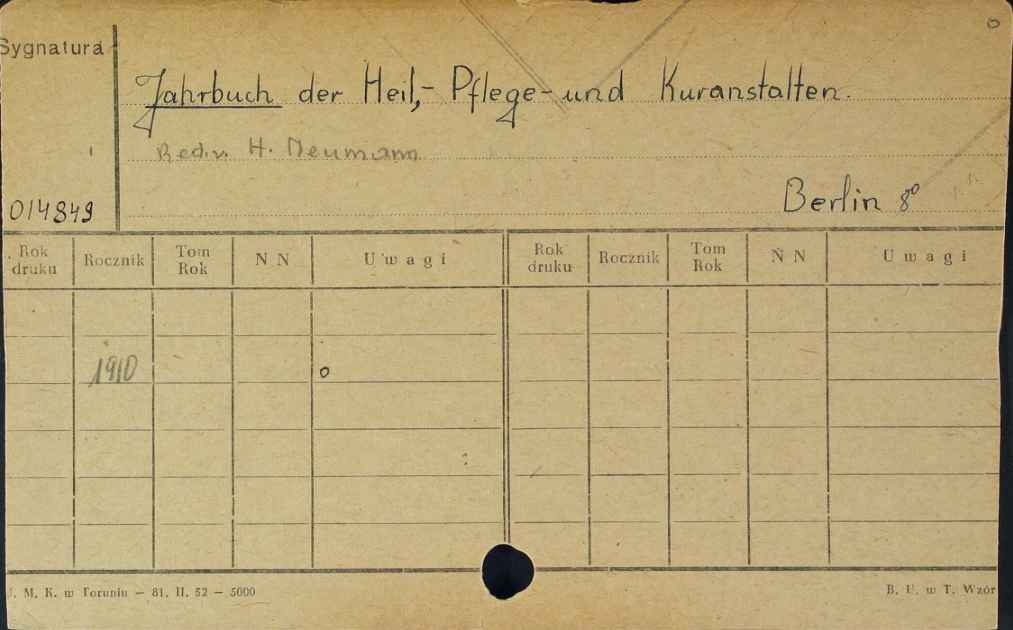 Sygnatura
Jahrbuch der Heil,- Pflege- und Kuranstalten.
Red. v. H. Neumann
Berlin 8°
014849
Rok druku Rocznik Tom Rok N N Uwagi Rok druku Rocznik Tom Rok N N Uwagi
1910 o
J. M. K. w Toruniu — 81. II. 52 — 5000 B. U. w T. Wzór